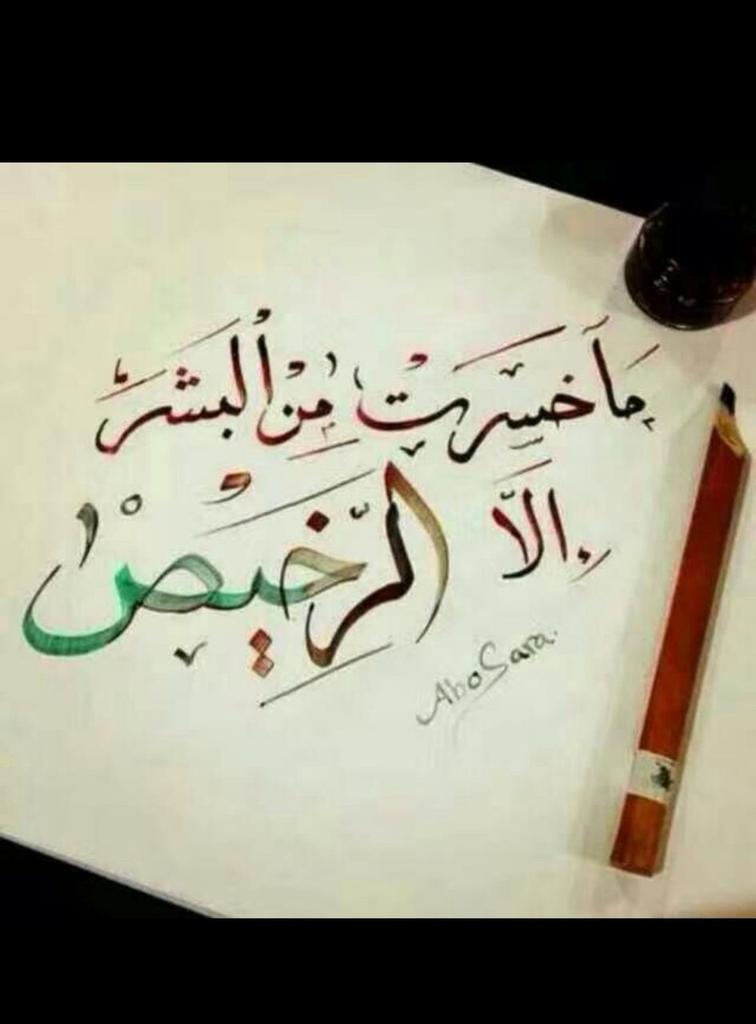 مَا خَسِرتْ مِنْ ألبَشرْ
إلاّ
الرَّخيصْ
AboSara.